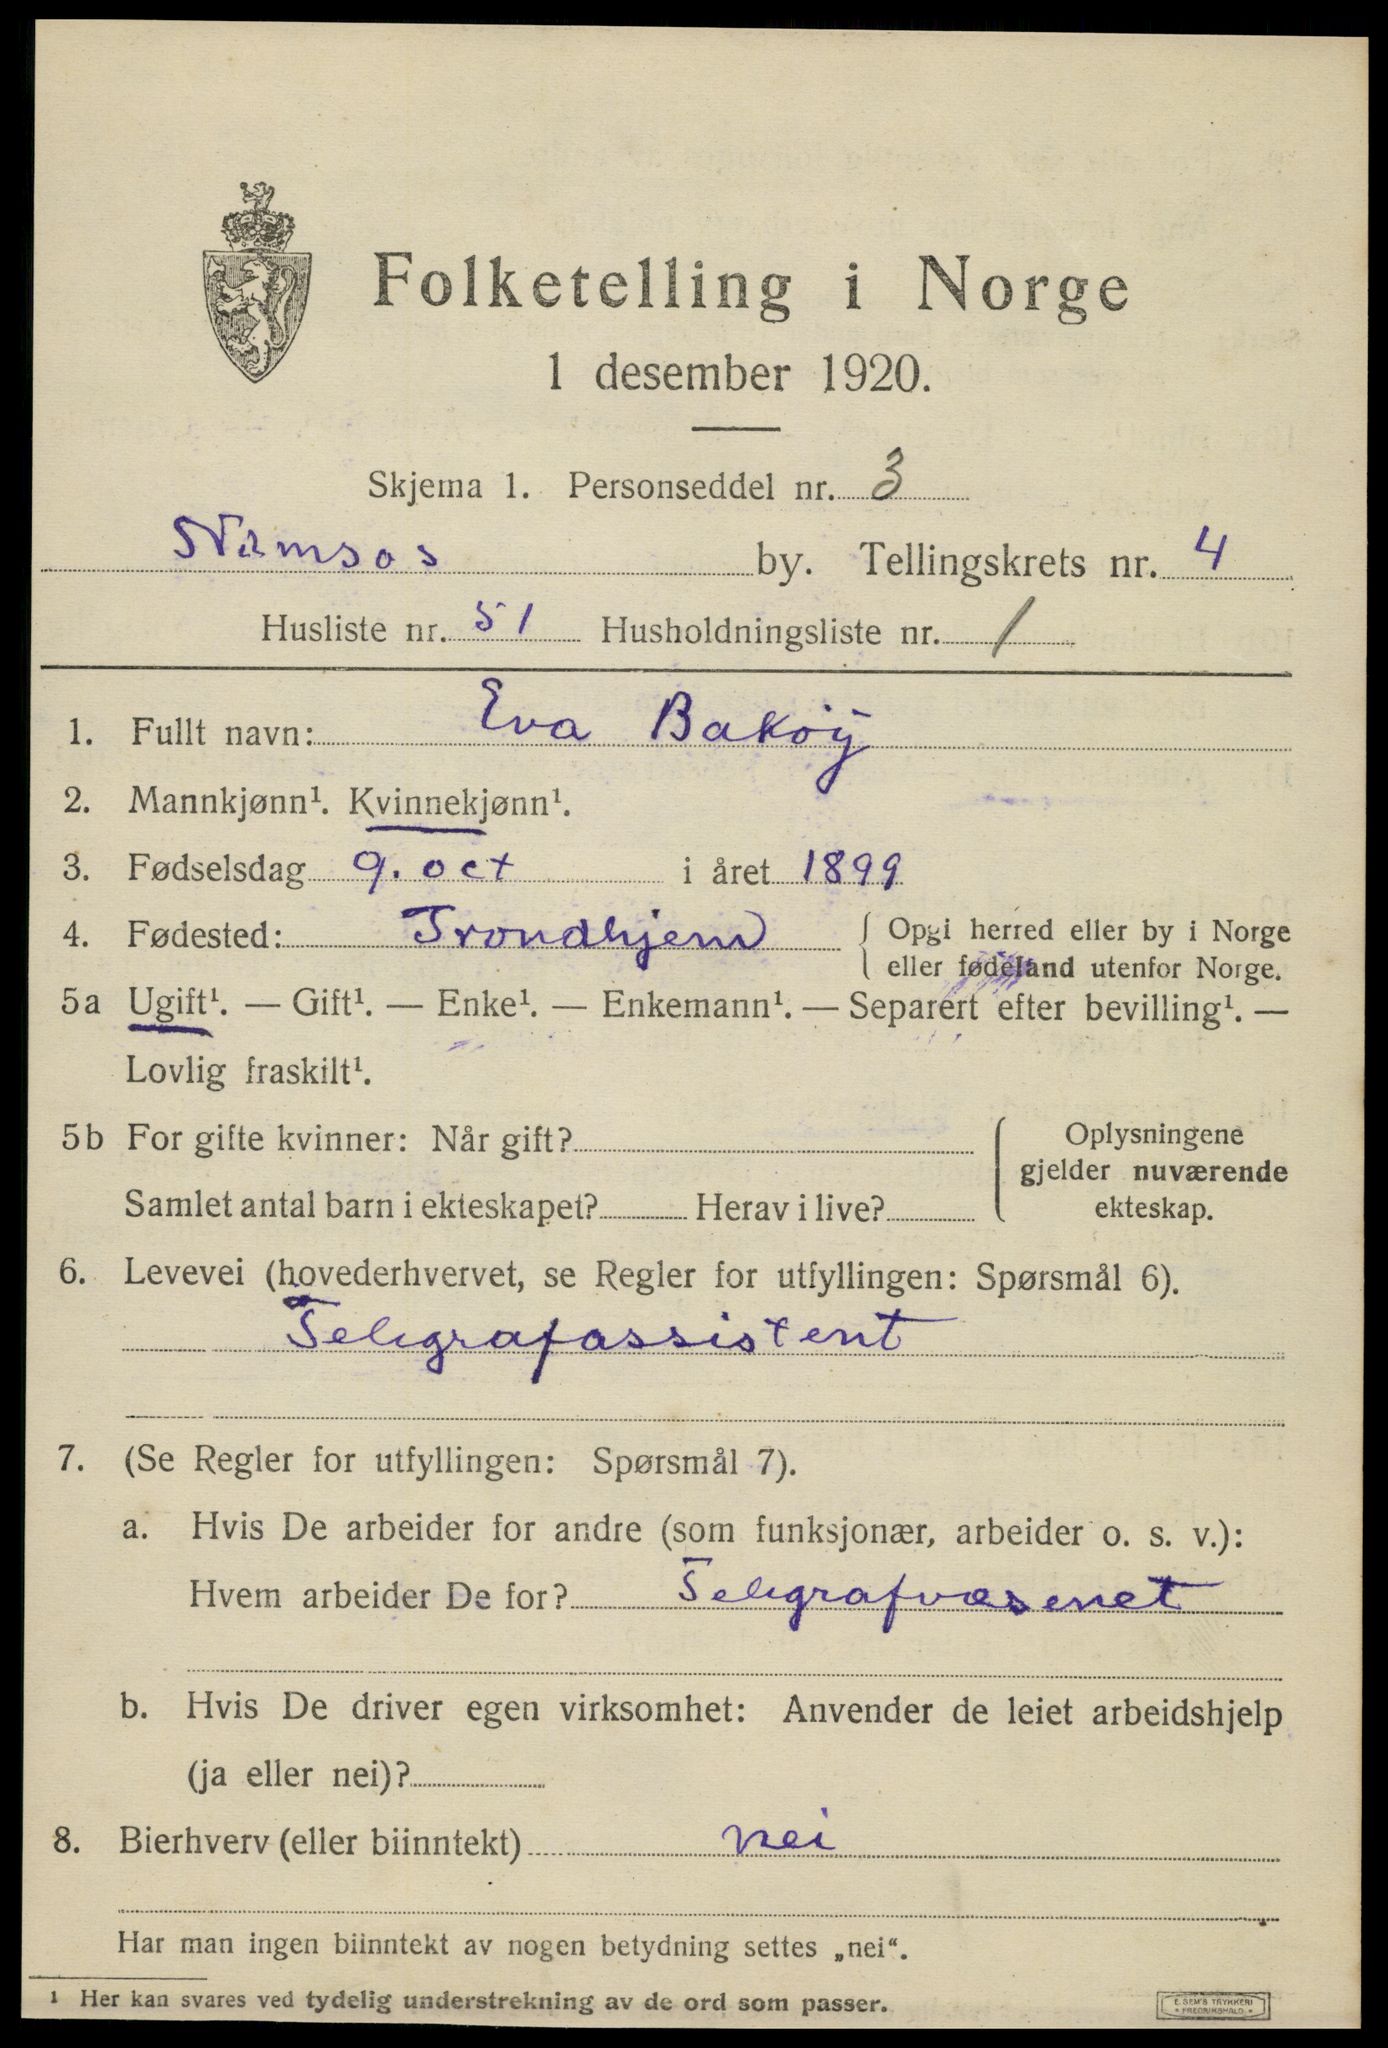 Folketelling i Norge
1 desember 1920.
Skjema 1. Personseddel nr. 3
Namsos by. Tellingskrets nr. 4
Husliste nr. 51 Husholdningsliste nr. 1
1. Fullt navn: Eva Bakøy
2. Mannkjønn¹. Kvinnekjønn¹.
3. Fødselsdag 9. oct i året 1899
4. Fødested: Trondhjem { Opgi herred eller by i Norge
eller fødeland utenfor Norge.
5a Ugift¹. — Gift¹. — Enke¹. — Enkemann¹. — Separert efter bevilling¹. —
Lovlig fraskilt¹.
5b For gifte kvinner: Når gift? Oplysningene
gjelder nuværende
Samlet antal barn i ekteskapet? Herav i live? ekteskap.
6. Levevei (hovederhvervet, se Regler for utfyllingen: Spørsmål 6).
Telegrafassistent
7. (Se Regler for utfyllingen: Spørsmål 7).
a. Hvis De arbeider for andre (som funksjonær, arbeider o. s. v.):
Hvem arbeider De for? Telegrafvæsenet
b. Hvis De driver egen virksomhet: Anvender de leiet arbeidshjelp
(ja eller nei)?
8. Bierhverv (eller biinntekt) nei
Har man ingen biinntekt av nogen betydning settes „nei“.
1 Her kan svares ved tydelig understrekning av de ord som passer.
E. SEM'S TRYKKERI
FREDRIKSHALD